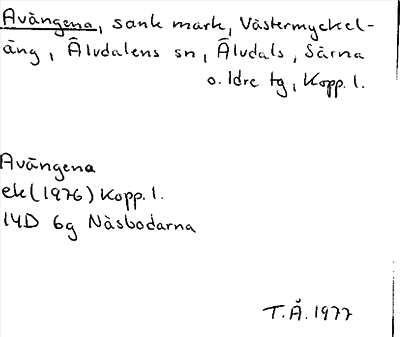 Avängena, sank mark, Västermyckel-
äng, Älvdalens sn, Älvdals, Särna
o. Idre tg, Kopp. l.
Avängena
ek (1976) Kopp. l.
14D 6g Näsbodarna
T.Å. 1977